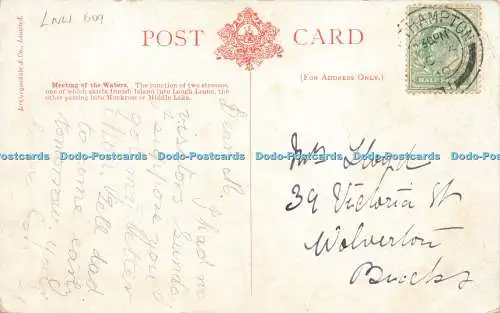 LNW 609
POST CARD
Meeting of the Waters. The junction of two streams,
one of which skirts Innish Island into Lough Leane, the
other passing into Muckross or Middle Lake.
(FOR ADDRESS ONLY.)
HAMPTON
HALFPENNY
Dear M. I had no
visitors Sunday
suppose you
got my letter
tell dad
to come early
tomorrow
Mrs Lloyd
39 Victoria St
Wolverton
Bucks
Dodo-Postcards Dodo-Postcards Dodo-Postcards Dodo-Postcards Dodo-Postcards